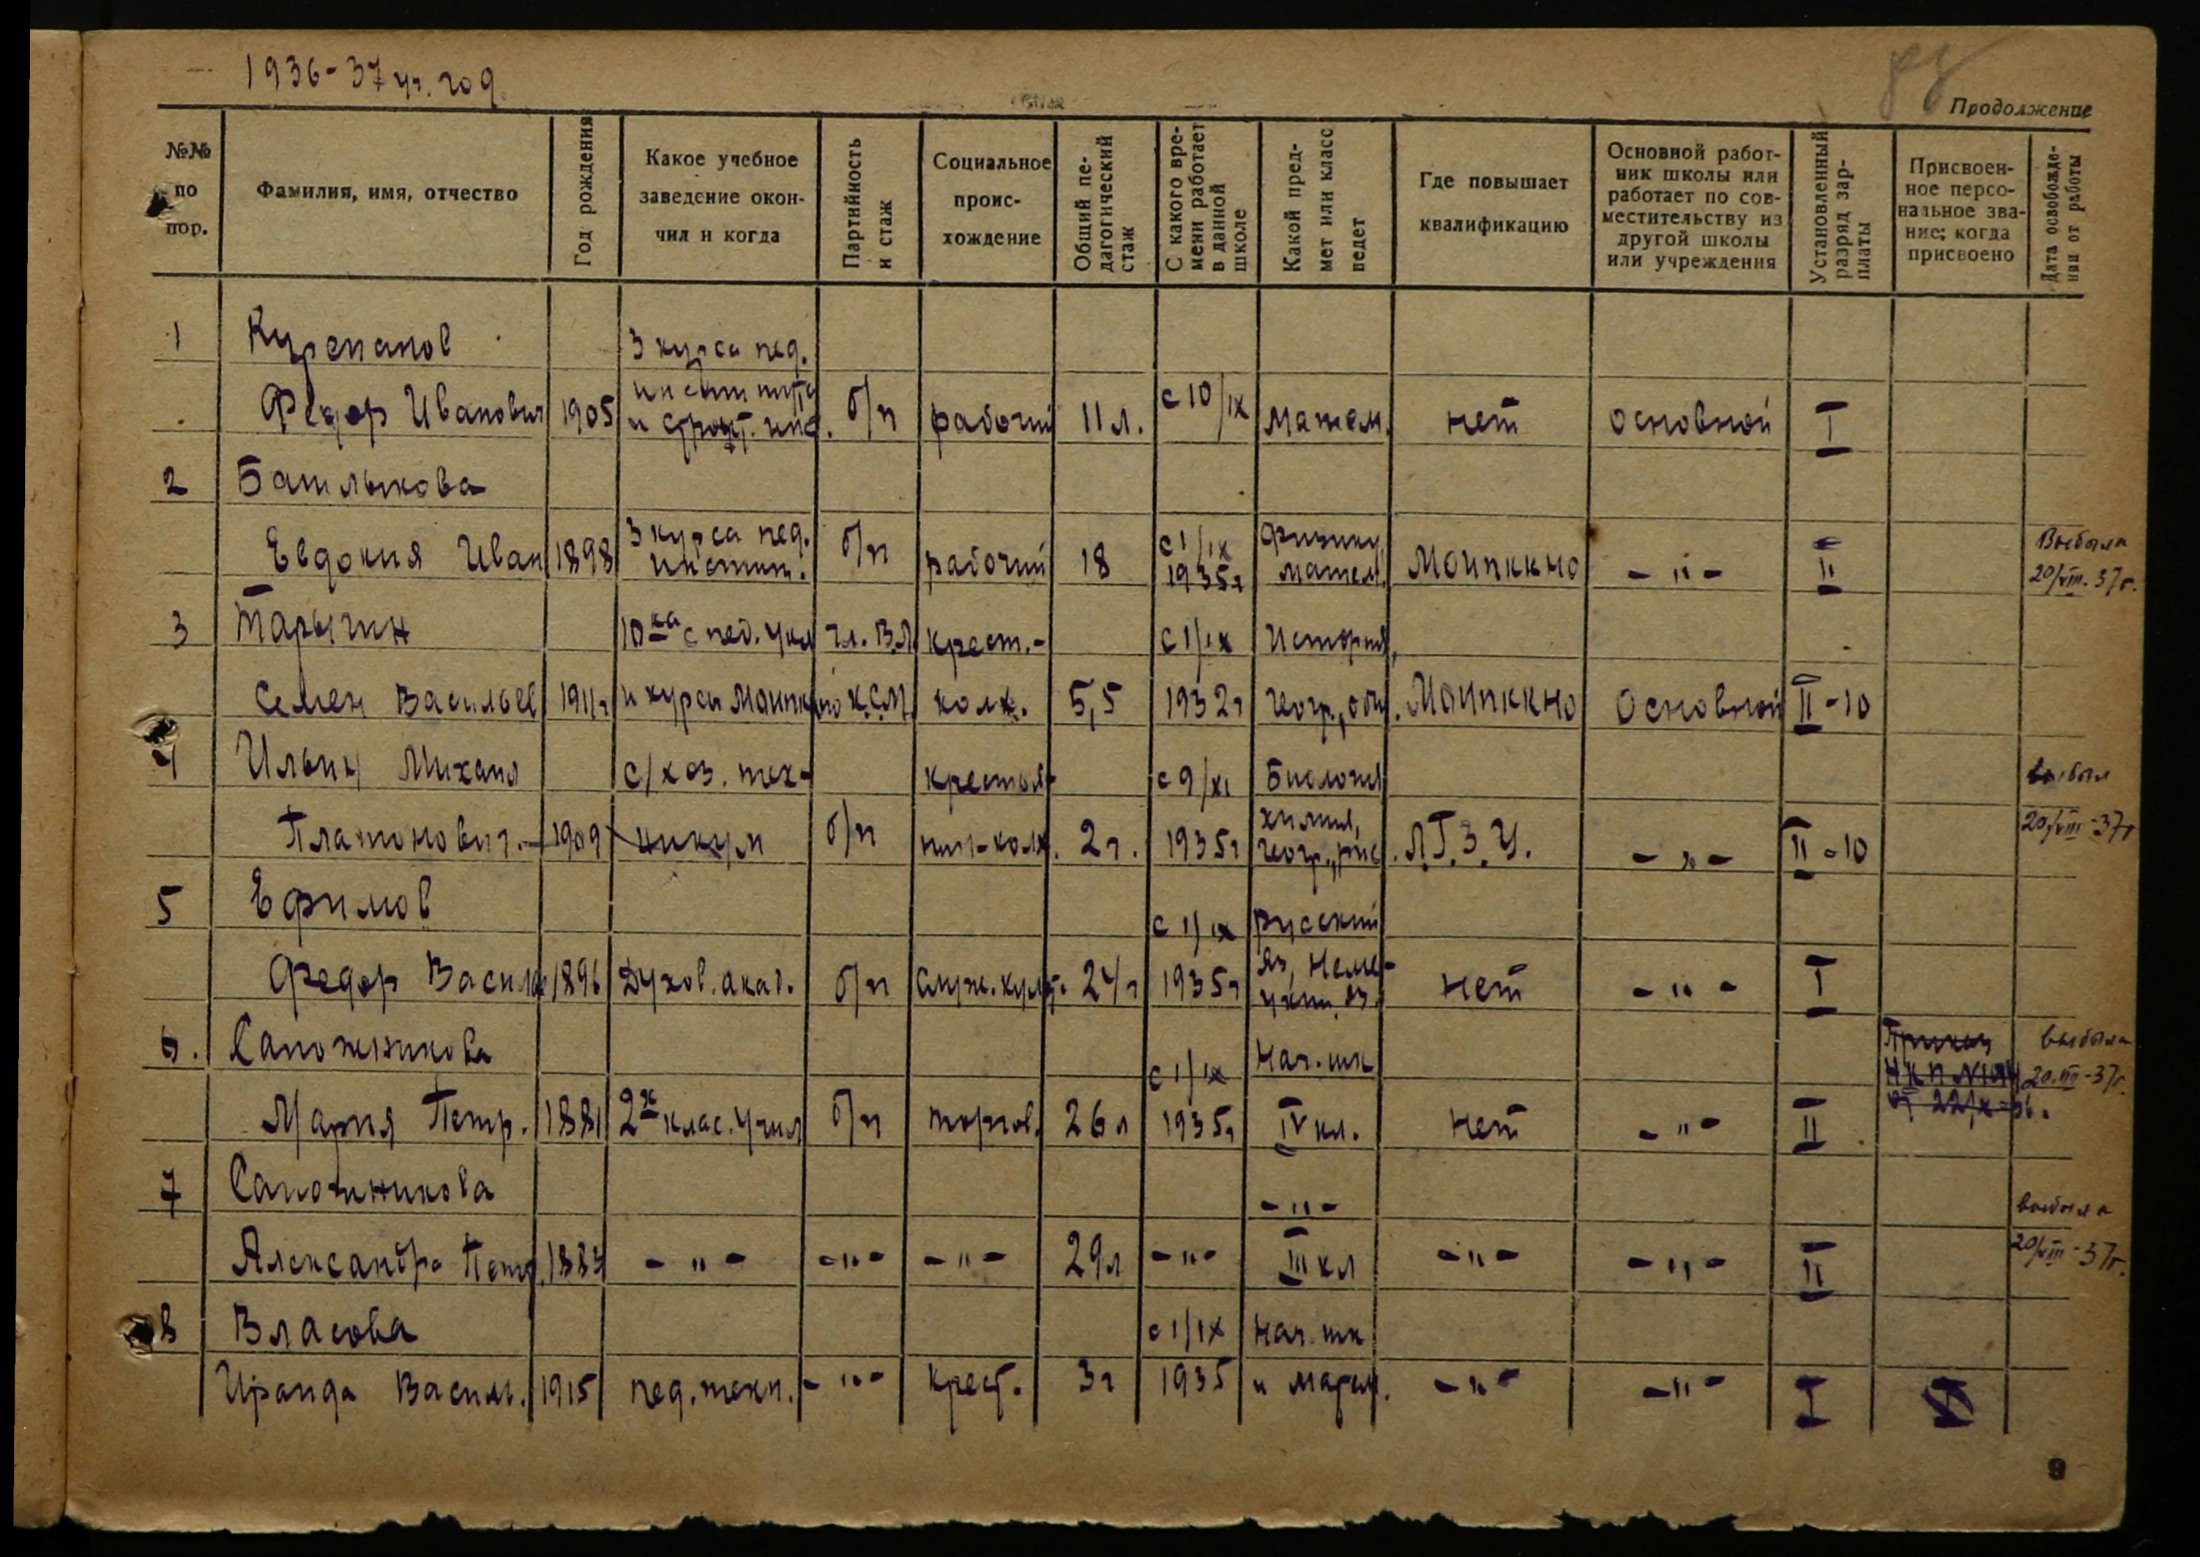 1936-37 уч. год
Продолжение
№№ по пор.
Фамилия, имя, отчество
Год рождения
Какое учебное заведение окончил и когда
Партийность и стаж
Социальное происхождение
Общий педагогический стаж
С какого времени работает в данной школе
Какой предмет или класс ведет
Где повышает квалификацию
Основной работник школы или работает по совместительству из другой школы или учреждения
Установленный разряд зарплаты
Присвоенное персональное звание; когда присвоено
Дата освобождения от работы
1 Курепанов 3 курса пед.
Федор Иванович 1905 института и строит. инс. б/п рабочий 11 л. с 10/IX матем. нет основной I
2 Башлыкова
Евдокия Иван 1898 3 курса пед. инстит. б/п рабочий 18 с 1/IX 1935г физику, матем. МОИПККНО – " – II Выбыла 20/VIII. 37г.
3 Тарыгин 10ка с пед. укл чл. ВЛ крест.- с 1/IX История,
Семен Васильев 1911г и курсы МОИПККНО КСМ колх. 5,5 1932г геогр., общ. МОИПККНО Основной II-10
4 Ильин Михаил с/хоз. тех- крестья- с 9/XI Биология выбыл
Платонович. 1909 никум б/п нин-колх. 2г. 1935г химия, геогр., рис. Л.Г.З.У. – " – II-10 20/VIII-37г
5 Ефимов с 1/IX русский
Федор Василь 1896 Духов. акад. б/п служ. культ. 24г 1935г яз, неме- цкий яз. нет – " – I
6. Сапожникова с 1/IX Нач. шк Приказ выбыла
Мария Петр. 1881 2х клас. учил б/п торгов. 26л 1935г IV кл. нет – " – II НКП от 22/X-36. 20.VIII-37г.
7 Сапожникова – " – выбыла
Александра Петр. – " – – " – – " – 29л – " – III кл – " – – " – II 20/VIII-37г.
8 Власова с 1/IX Нач. шк
Ираида Василь. 1915 пед. техн. – " – крест. 3г 1935 и матем. – " – – " – I
9